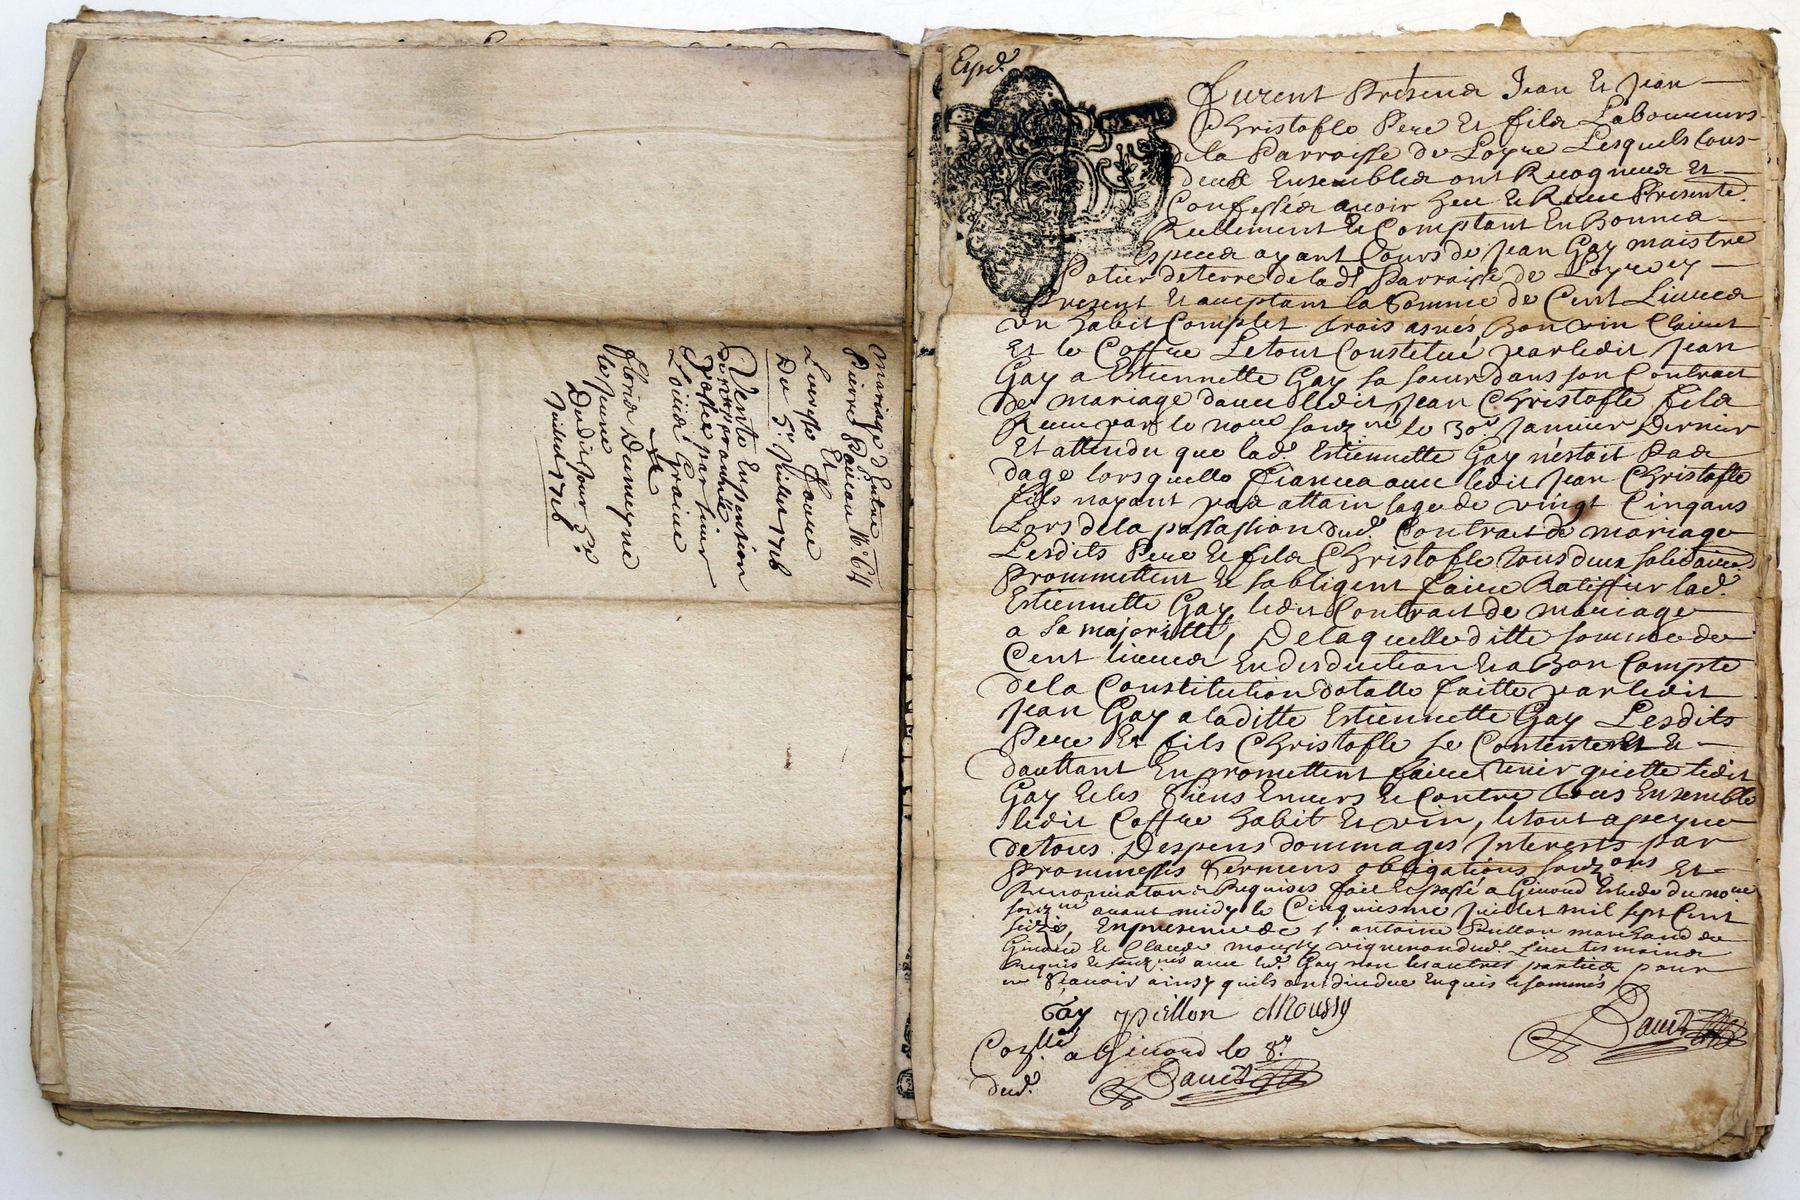 mariage d'Entre
Pierre
Louyse Faurce
Et
Du 5e Juillet 1716
Vente Enpention
passée par sieur
Loüis Graine
A
Floris Dumeyne
le jeune
Dudit jour 5e
Juillet 1716
Expd.
Furent Présents Jean Et Jean
Christofle Pere Et fils Laboureurs
de la Parroisse de Loyre Lesquels tous
deux Ensembles ont Recogneus Et
Confessés avoir heu Et Receu Présente.
Reellement Et Comptant En Bonnes
Especes ayant Cours de Jean Gay maistre
Potier de terre de lad. Parroisse de Loyre icy
Present Et acceptant la Somme de Cent Livres
un habit Complet trois asnés Bon vin Clairet
Et le Coffre Le tout Constitué par ledit Jean
Gay a Estiennette Gay sa soeur dans son Contrait
de mariage davec ledit Jean Christofle fils
Receu par le nore souzne le 30e Janvier Dernier
Et attendu que lad. Estiennette Gay n'estoit Pas
dage lorsquelle fiança avec ledit Jean Christofle
fils nayant pas attain lage de vingt Cinq ans
Lors de la passassion dud. Contrait de mariage
Lesdits Pere Et fils Christofle tous deux solidaire.
Prommettent Et sobligent faire Ratiffier lad.
Estiennette Gay ledit Contrait de mariage
a sa majoritté, De laquelle ditte somme de
Cent livres En desduction Et a Bon Compte
de la Constitution dotalle faitte par ledit
Jean Gay a laditte Estiennette Gay Lesdits
Pere Et fils Christofle se Contentent Et
dauttant En promettent faire tenir quiette ledit
Gay Et les Siens Envers Et Contre tous Ensemble
ledit Coffre habit Et vin, le tout a peyne
de tous Despens dommages Interests par
Prommesses Sermens obligations souzons Et
Renonciations Requises fait Et passé a Givord Estude du nore
souzne avant midy le Cinquiesme Juillet mil sept Cent
seize, En presence de sr. antoine Pillon marchand de
Givord Et Claude Moussy vigneron dud. Lieu tesmoins
Requis Et souznés avec led. Gay non les autres parties pour
ne Sçavoir ainsy quils ont dit de ce Enquis Et sommés
Gay pillon Moussy
Conllé a Givord le 8e
dud.